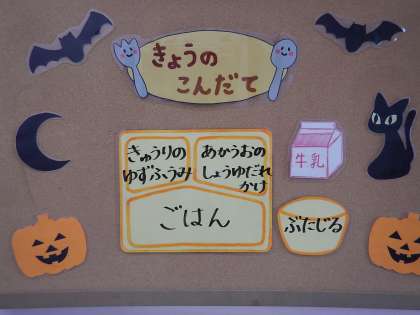 きょうの
こんだて
きゅうりの
ゆずふうみ
あかうおの
しょうゆだれ
かけ
牛乳
ごはん
ぶたじる